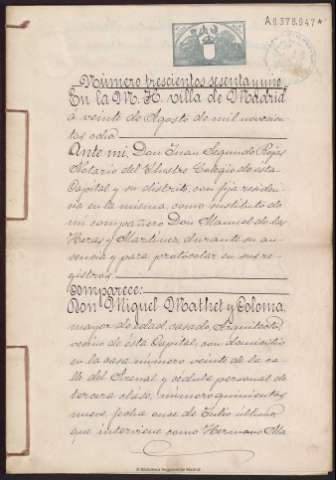 A8.378.947*
Número trescientos sesenta y uno.
En la M. H. villa de Madrid
a veinte de Agosto de mil novecien
tos ocho
Ante mi, Don Juan Segundo Rojas
Notario del Ilustre Colegio de esta
Capital y su distrito, con fija residen
cia en la misma, como sustituto de
mi compañero Don Manuel de las
Heras y Martinez, durante su au
sencia y para protocolar en sus re
gistros.
Comparece:
Don Miguel Mathet y Coloma,
mayor de edad, casado, Arquitecto,
vecino de ésta Capital, con domicilio
en la casa número veinte de la ca
lle del Arenal y cédula personal de
tercera clase, número quinientos
nueve, fecha once de Julio último
que interviene como Hermano Ma
© Biblioteca Regional de Madrid